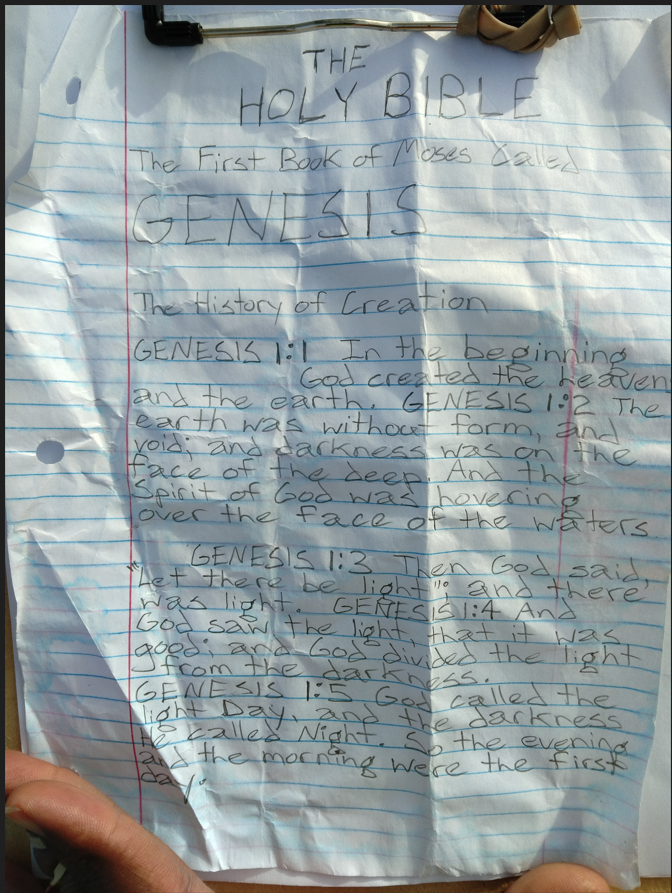 THE
HOLY BIBLE
The First Book of Moses Called
GENESIS
The History of Creation
GENESIS 1:1 In the beginning
God created the heaven
and the earth. GENESIS 1:2 The
earth was without form, and
void; and darkness was on the
face of the deep. And the
Spirit of God was hovering
over the face of the waters
GENESIS 1:3 Then God said,
"Let there be light"; and there
was light. GENESIS 1:4 And
God saw the light, that it was
good; and God divided the light
from the darkness.
GENESIS 1:5 God called the
light Day, and the darkness
He called Night. So the evening
and the morning were the first
day.